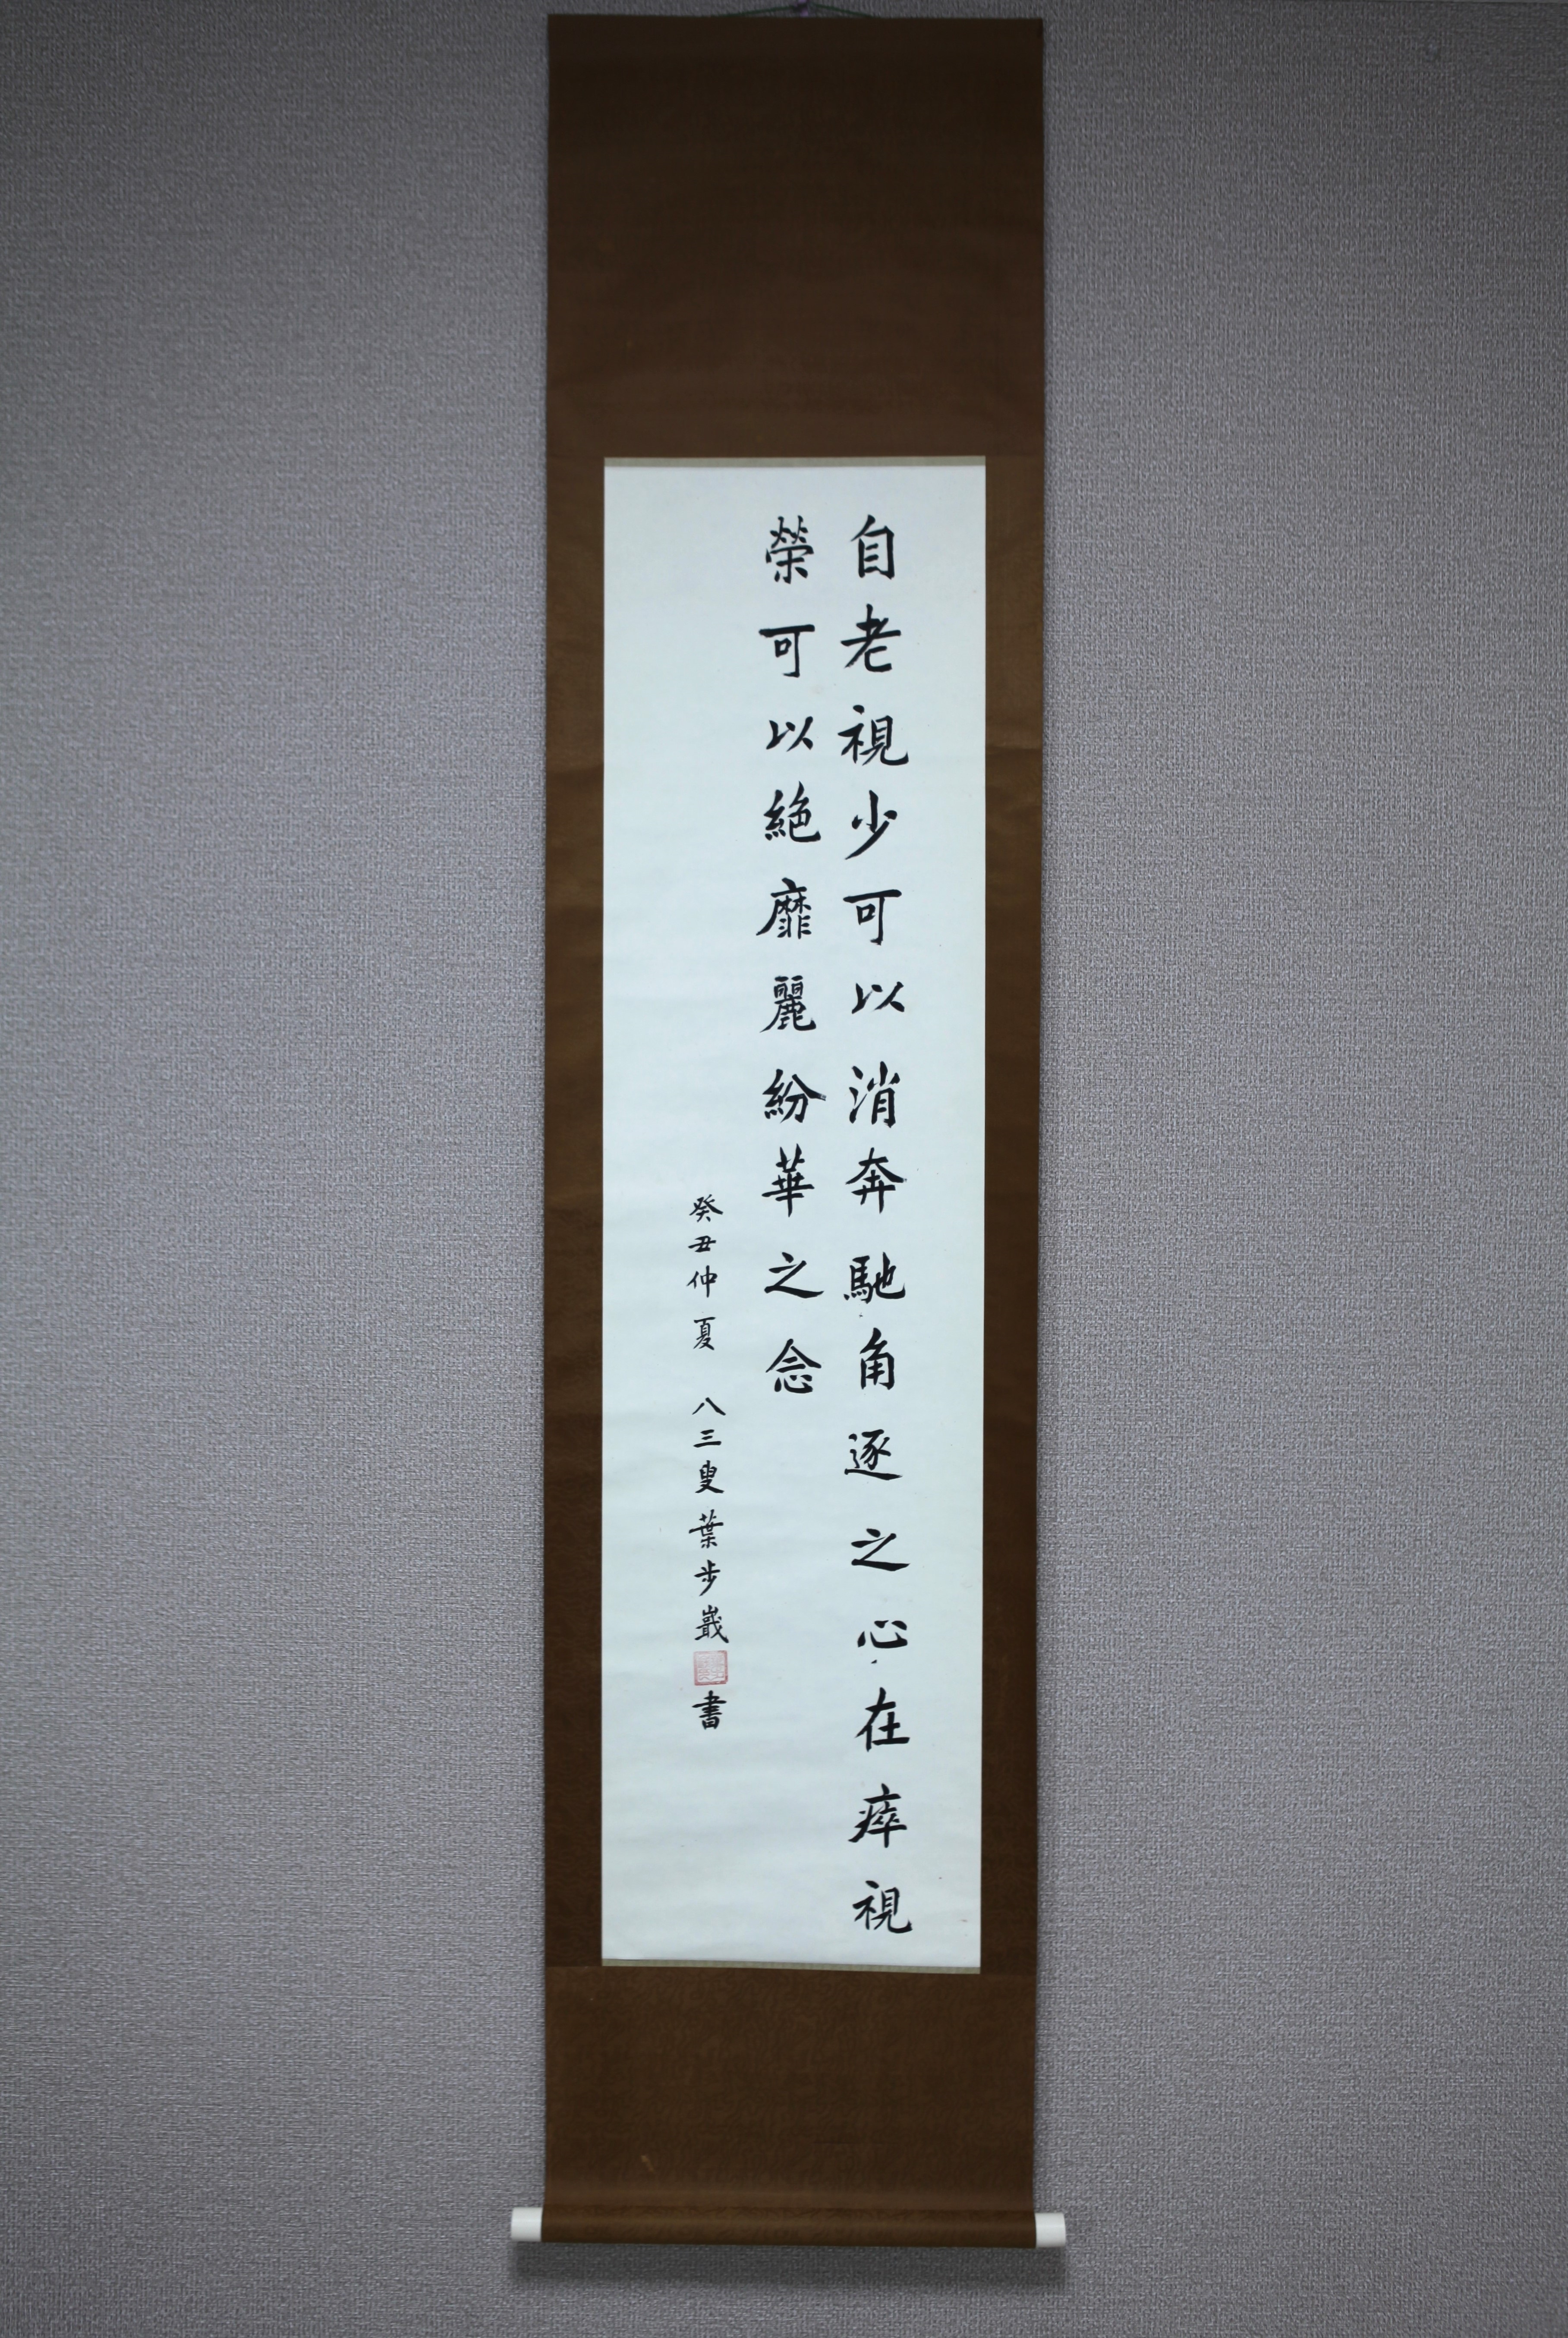 自老視少可以消奔馳角逐之心在瘁視
榮可以絶靡麗紛華之念
癸丑仲夏 八三叟葉步嶯書